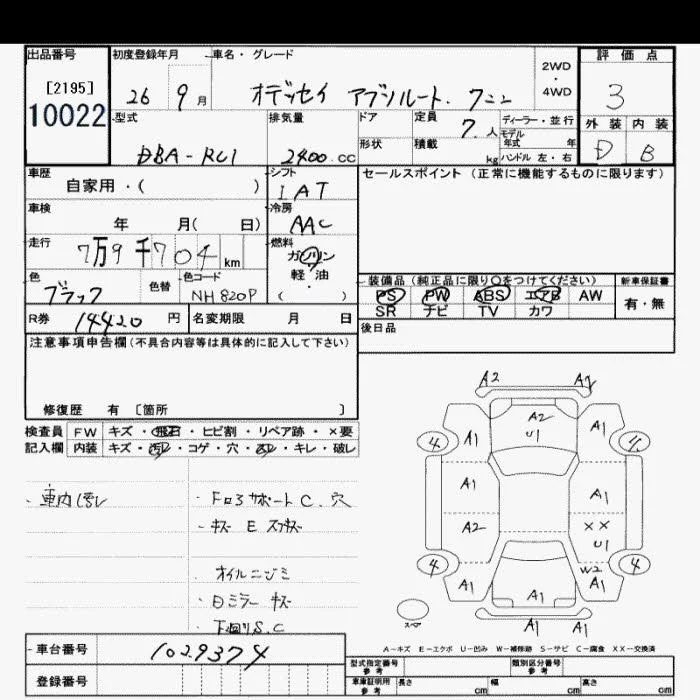 出品番号 初度登録年月 車名・グレード 評価点
[2195] 2WD・4WD
10022 26 9月 オデッセイ アブソルート. 3
型式 排気量 ドア 定員 ディーラー・並行 外装 内装
DBA-RC1 2400.CC 7.人 モデル年式 年 D B
形状 積載 kg ハンドル 左・右
車歴 シフト セールスポイント (正常に機能するものに限ります)
自家用・( ) IAT
車検 冷房
年 月( 日) AAC
走行 燃料
7万9千704km ガソリン
軽・油
色 色替 色コード ・ 装備品(純正品に限り〇をつけてください) 新車保証書
ブラック NH820P ( ) PS PW ABS エアB AW 有・無
SR ナビ TV カワ
R券 14420円 名変期限 月 日 後日品
注意事項申告欄(不具合内容等は具体的に記入して下さい)
修復歴 有 〔箇所 〕
検査員 FW キズ・飛石・ヒビ割・リペア跡・×要
記入欄 内装 キズ・汚レ・コゲ・穴・スレ・キレ・破レ
・車内汚レ
・キズ
オイルニジミ
・日ミラー キズ
・下廻りS.C
A2
A2 U1
4 A1 A1
A1 A1
A2 XX
U1
W2
4 A1 A1 A1 4
スペア A1 A1
A-キズ E-エクボ U-凹み W-補修跡 S-サビ C-腐食 XX-交換済
車台番号 1029374 型式指定番号 参考 類別区分番号 参考
登録番号 車庫証明用 参考 長さ cm 幅 cm 高さ cm